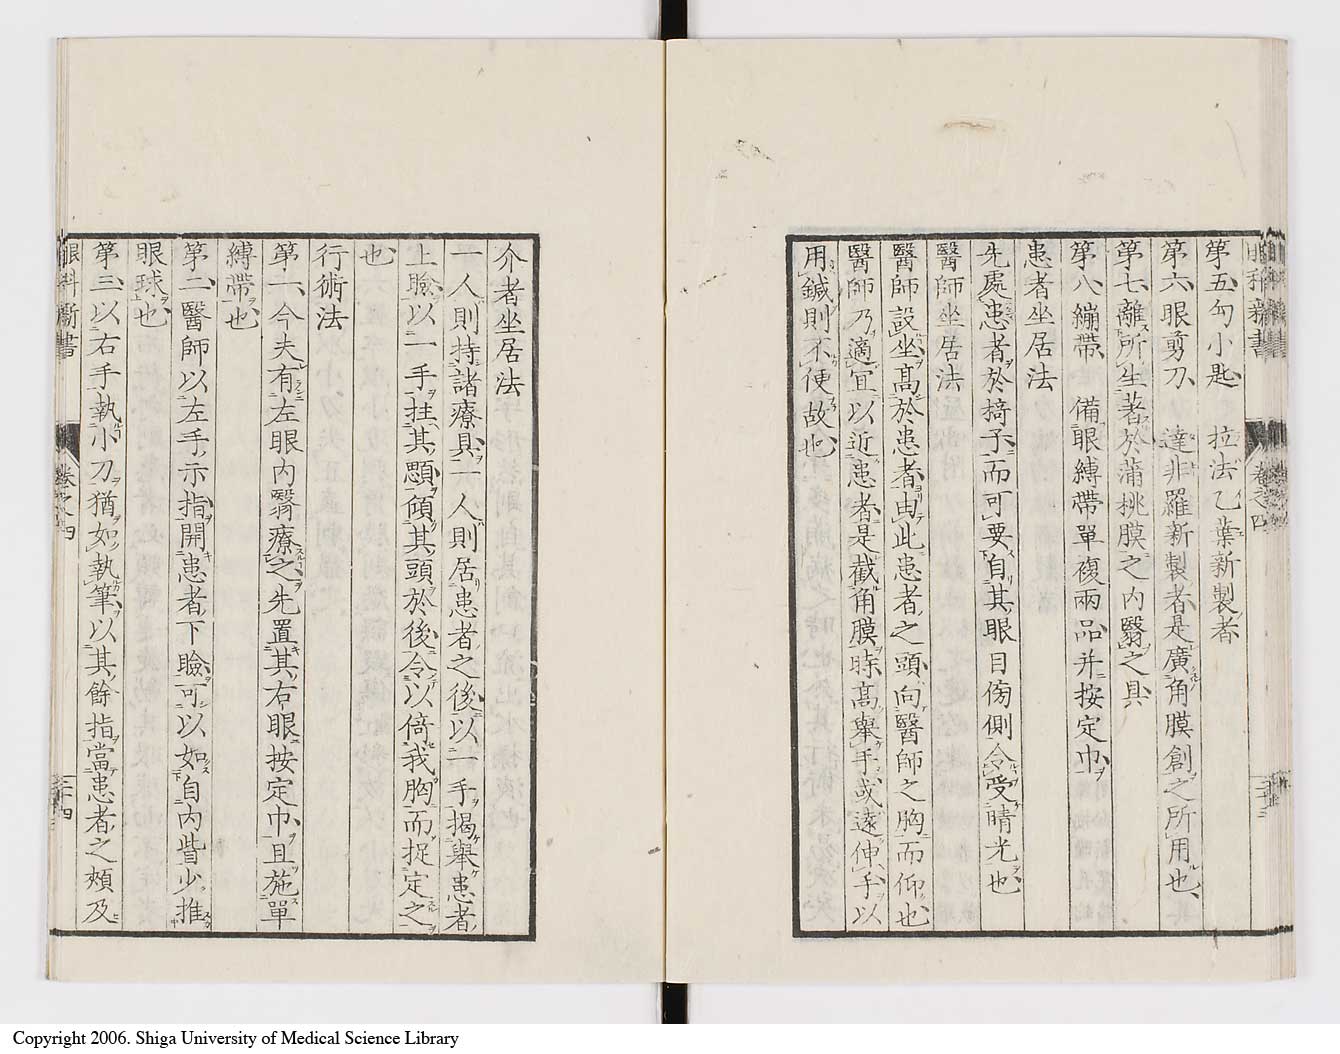 第五、勾小匙、 拉法乙葉新製者
第六、眼剪刀、 達非羅新製者是廣角膜創之所用也、
第七、離所生著於蒲桃膜之內翳之具
第八、繃帶、 備眼縛帶單複兩品并按定巾、
患者坐居法
先處患者於掎子而可要自其眼目傍側令受晴光也、
醫師坐居法
醫師設坐髙於患者由此患者之頭向醫師之胸而仰也
醫師乃適宜以近患者是截角膜時髙舉手或遠伸手以
用鍼則不便故也、
眼科新書
卷之四
介者坐居法
一人則持諸療具、一人則居患者之後以一手揭舉患者
上瞼、以一手拄其顋傾其頭於後令以倚我胸而捉定之
也、
行術法
第一、今夫有左眼內翳療之先置其右眼按定巾、且施單
縛帶也
第二、醫師以左手示指開患者下瞼可以如自內眥少推
眼球也
第三、以右手執小刀猶如執筆以其餘指當患者之頰及
眼科新書
卷之四
三十四
Copyright 2006. Shiga University of Medical Science Library